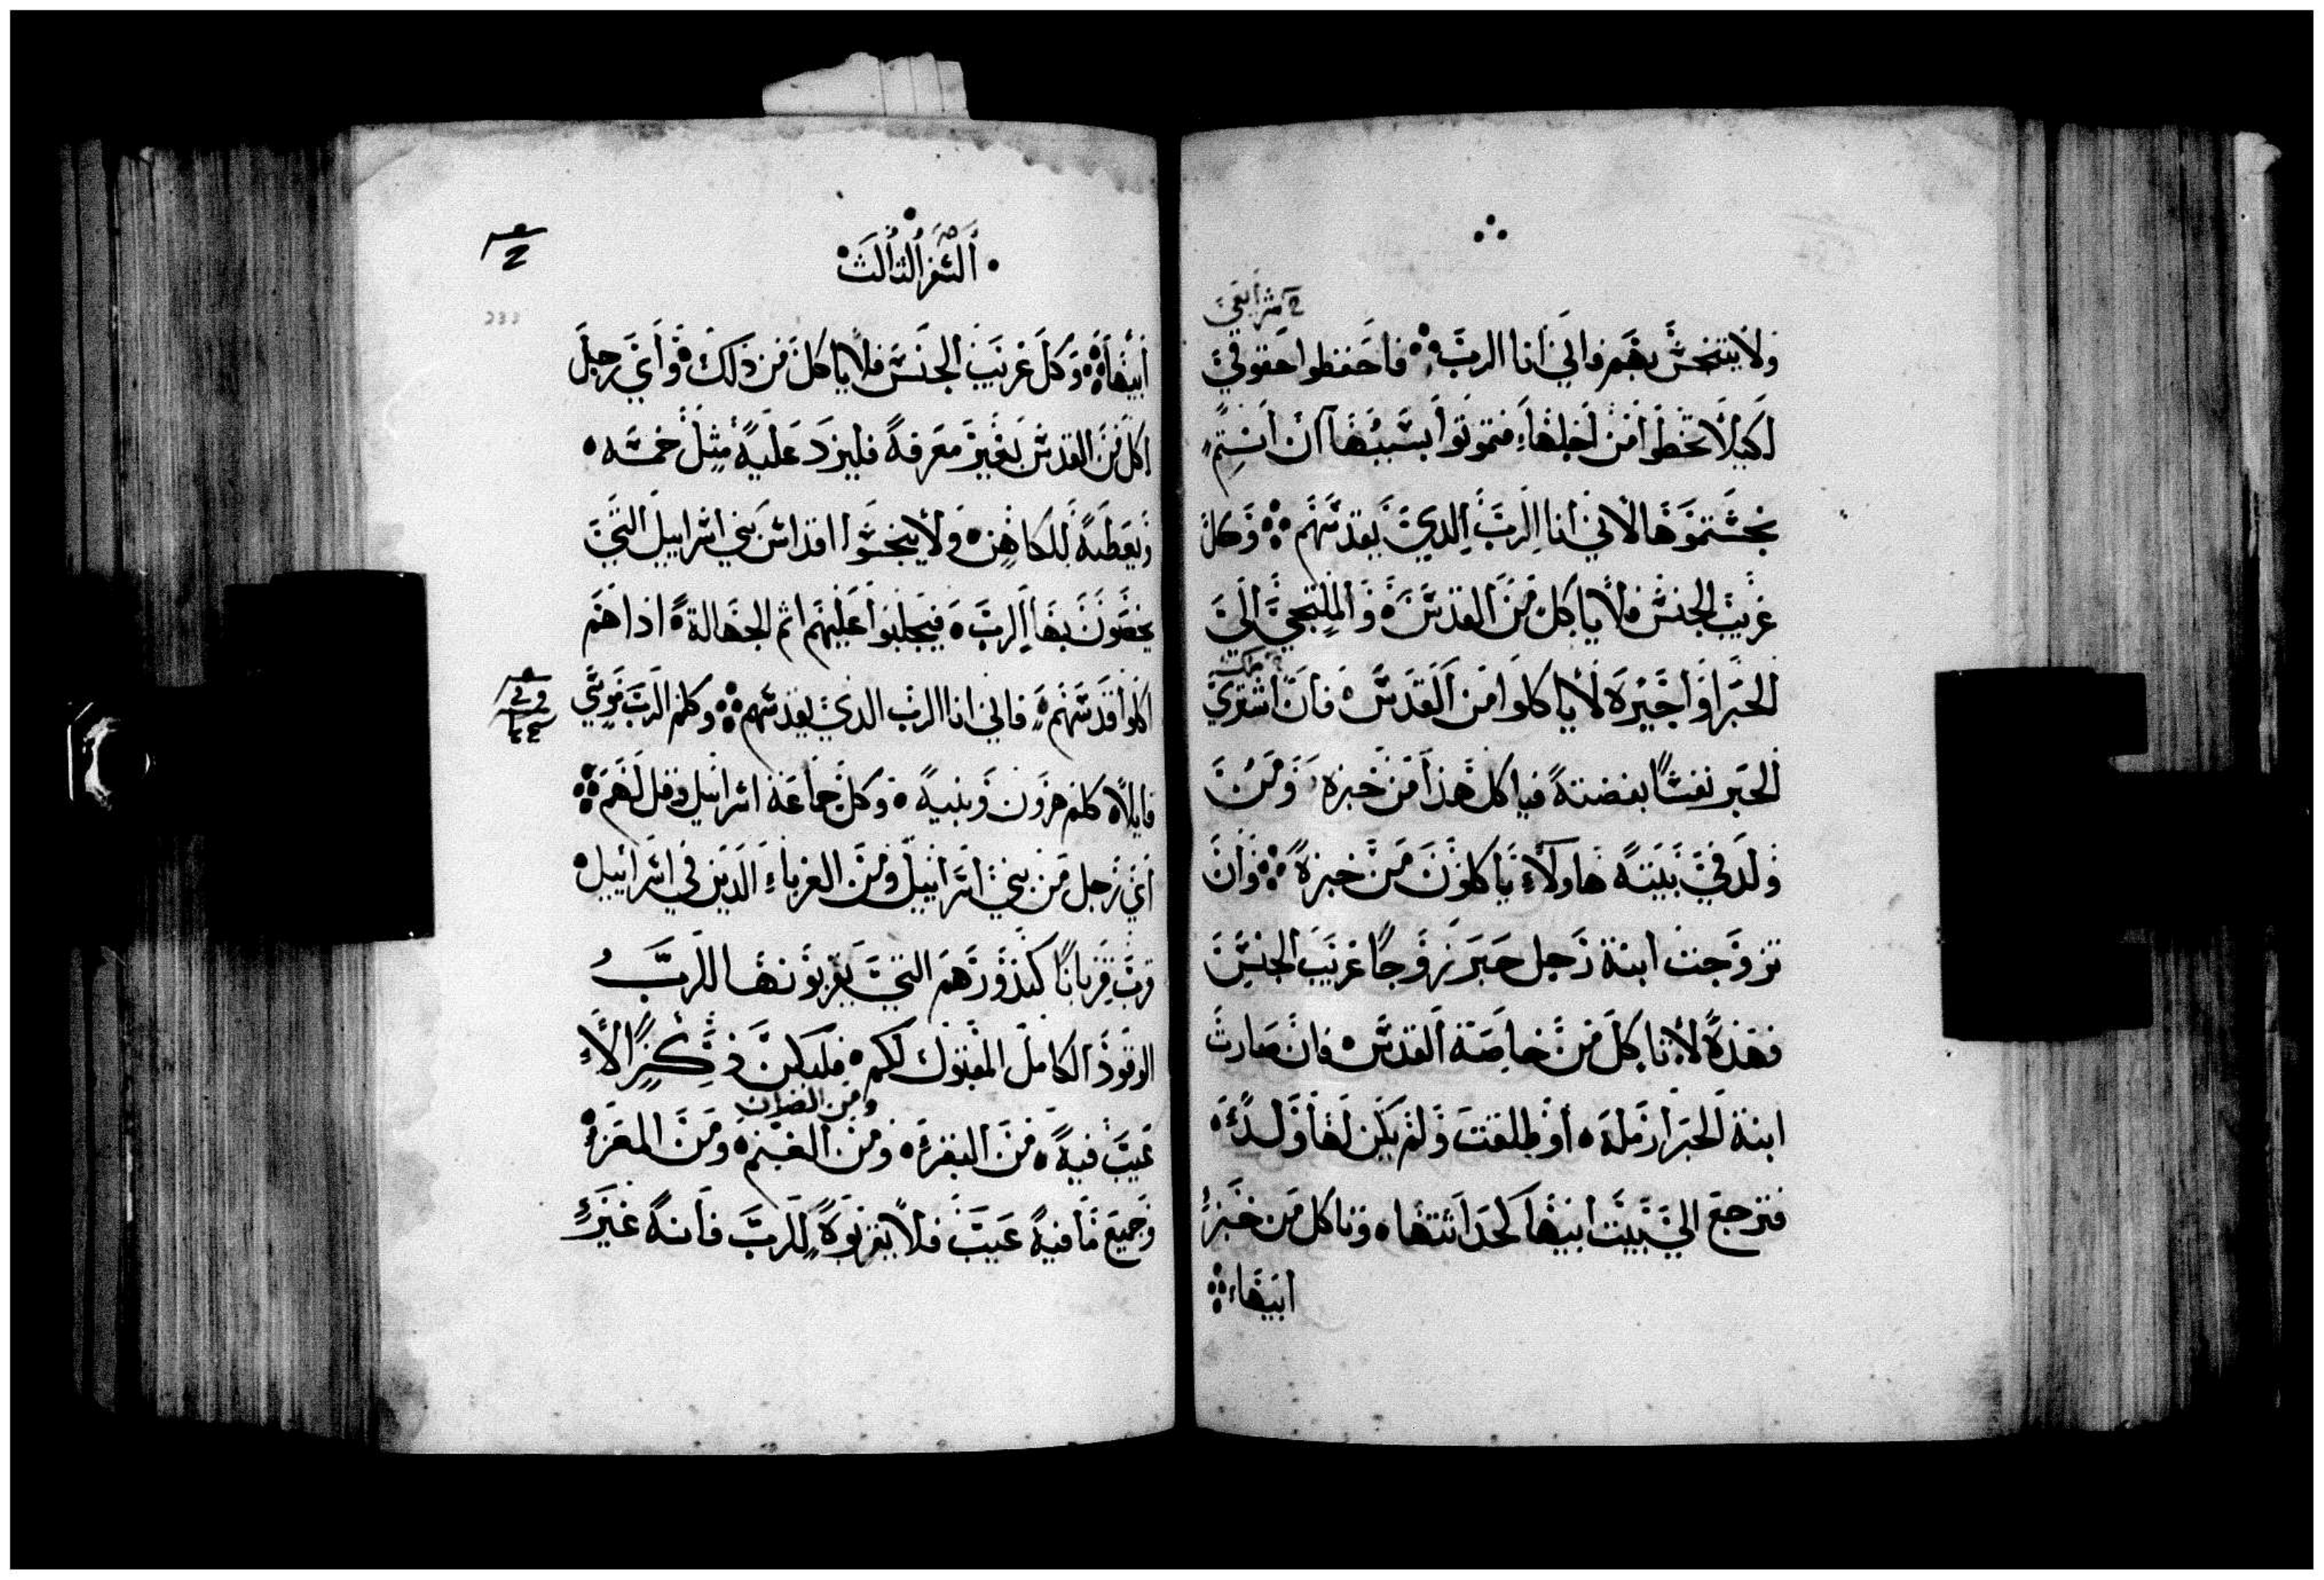 ولا يتنجس بهم فاني انا الرب فاحفظوا حقوقي
شرايعي
لكيلا تخطوا من اجلها فتموتوا بسببها ان انتم
نجستموها لاني انا الرب الذي يقدسهم وكل
غريب الجنس فلا ياكل من القدس والملتجي الي
الحبر او اجيره لا ياكلوا من القدس فان اشتري
ملك
الحبر نفسًا بفضته فياكل هذا من خبزه ومن
ولد في بيته هاولاء ياكلون من خبزه وان
تزوجت ابنة رجل حبر زوجًا غريب الجنس
فهذه لا تاكل من خاصة القدس فان صارت
ابنة الحبر ارملة او طلقت ولم يكن لها ولد
فترجع الي بيت ابيها كحداثتها وتاكل من خبز
ابيها
السفر الثالث
ابيها وكل غريب الجنس فلا ياكل من ذلك واي رجل
اكل من القدس بغير معرفة فليزد عليه مثل خمسه
ويعطيه للكاهن ولا ينجسوا اقداس بني اسراييل التي
يخصون بها الرب فيجلبوا عليهم اثم الجهالة اذا هم
اكلوا قدسهم فاني انا الرب الذي يقدسهم وكلم الرب موسي
قايلا كلم هرون وبنيه وكل جماعة اسراييل وقل لهم
اي رجل من بني اسراييل ومن الغرباء الذين في اسراييل
قرب قربانًا كنذورهم التي يقربونها للرب
الوقود الكامل المقبول لكم فليكن ذكرًا لا
عيب فيه من البقر ومن الغنم ومن المعز
ومن الضان
وجميع ما فيه عيب فلا يقربوه للرب فانه غير